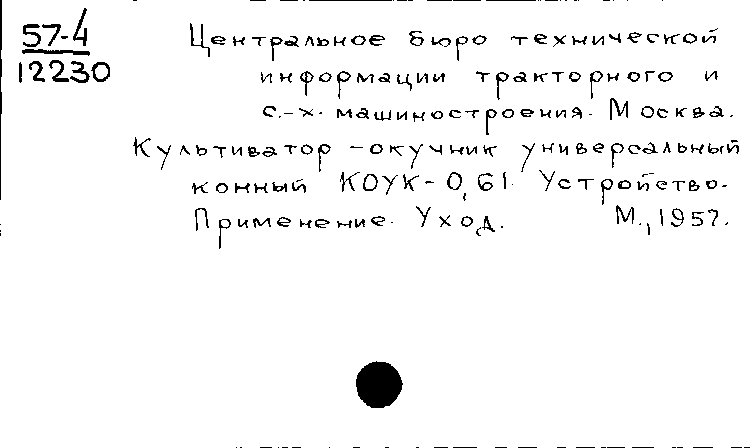 57-4
12230
Центральное бюро технической
информации тракторного и
с.-х. машиностроения. Москва.
Культиватор-окучник универсальный
конный КОУК-0,61. Устройство.
Применение. Уход. М., 1957.